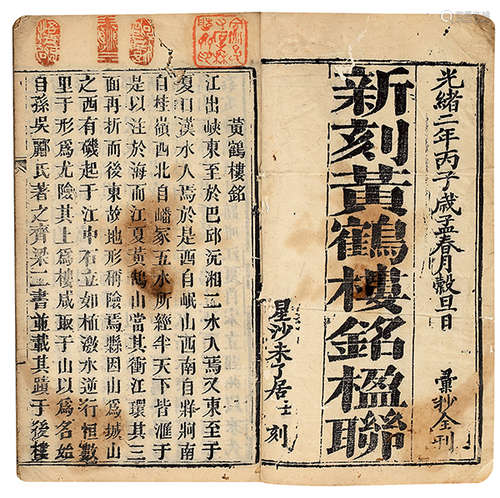 光緒二年丙子歲孟春月穀旦日
彙抄全刊
新刻黃鶴樓銘楹聯
星沙未了居士刻
黃鶴樓銘
江出峽東至於巴邱沅湘二水入焉又東至于
夏口漢水入焉於是自岷山西南自牂牁南
自桂嶺西北自嶓冢五水所經半天下皆滙于
是以注於海而江夏黃鶴山當其衝江環其三
面再折而後東故地形稱險焉縣因山爲城山
之西有磯起于江中石立如植激水逆行恒數
里于形爲尤險其上爲樓咸取于山以爲名始
自孫吳酈氏著之齊梁二書並載其蹟于後樓